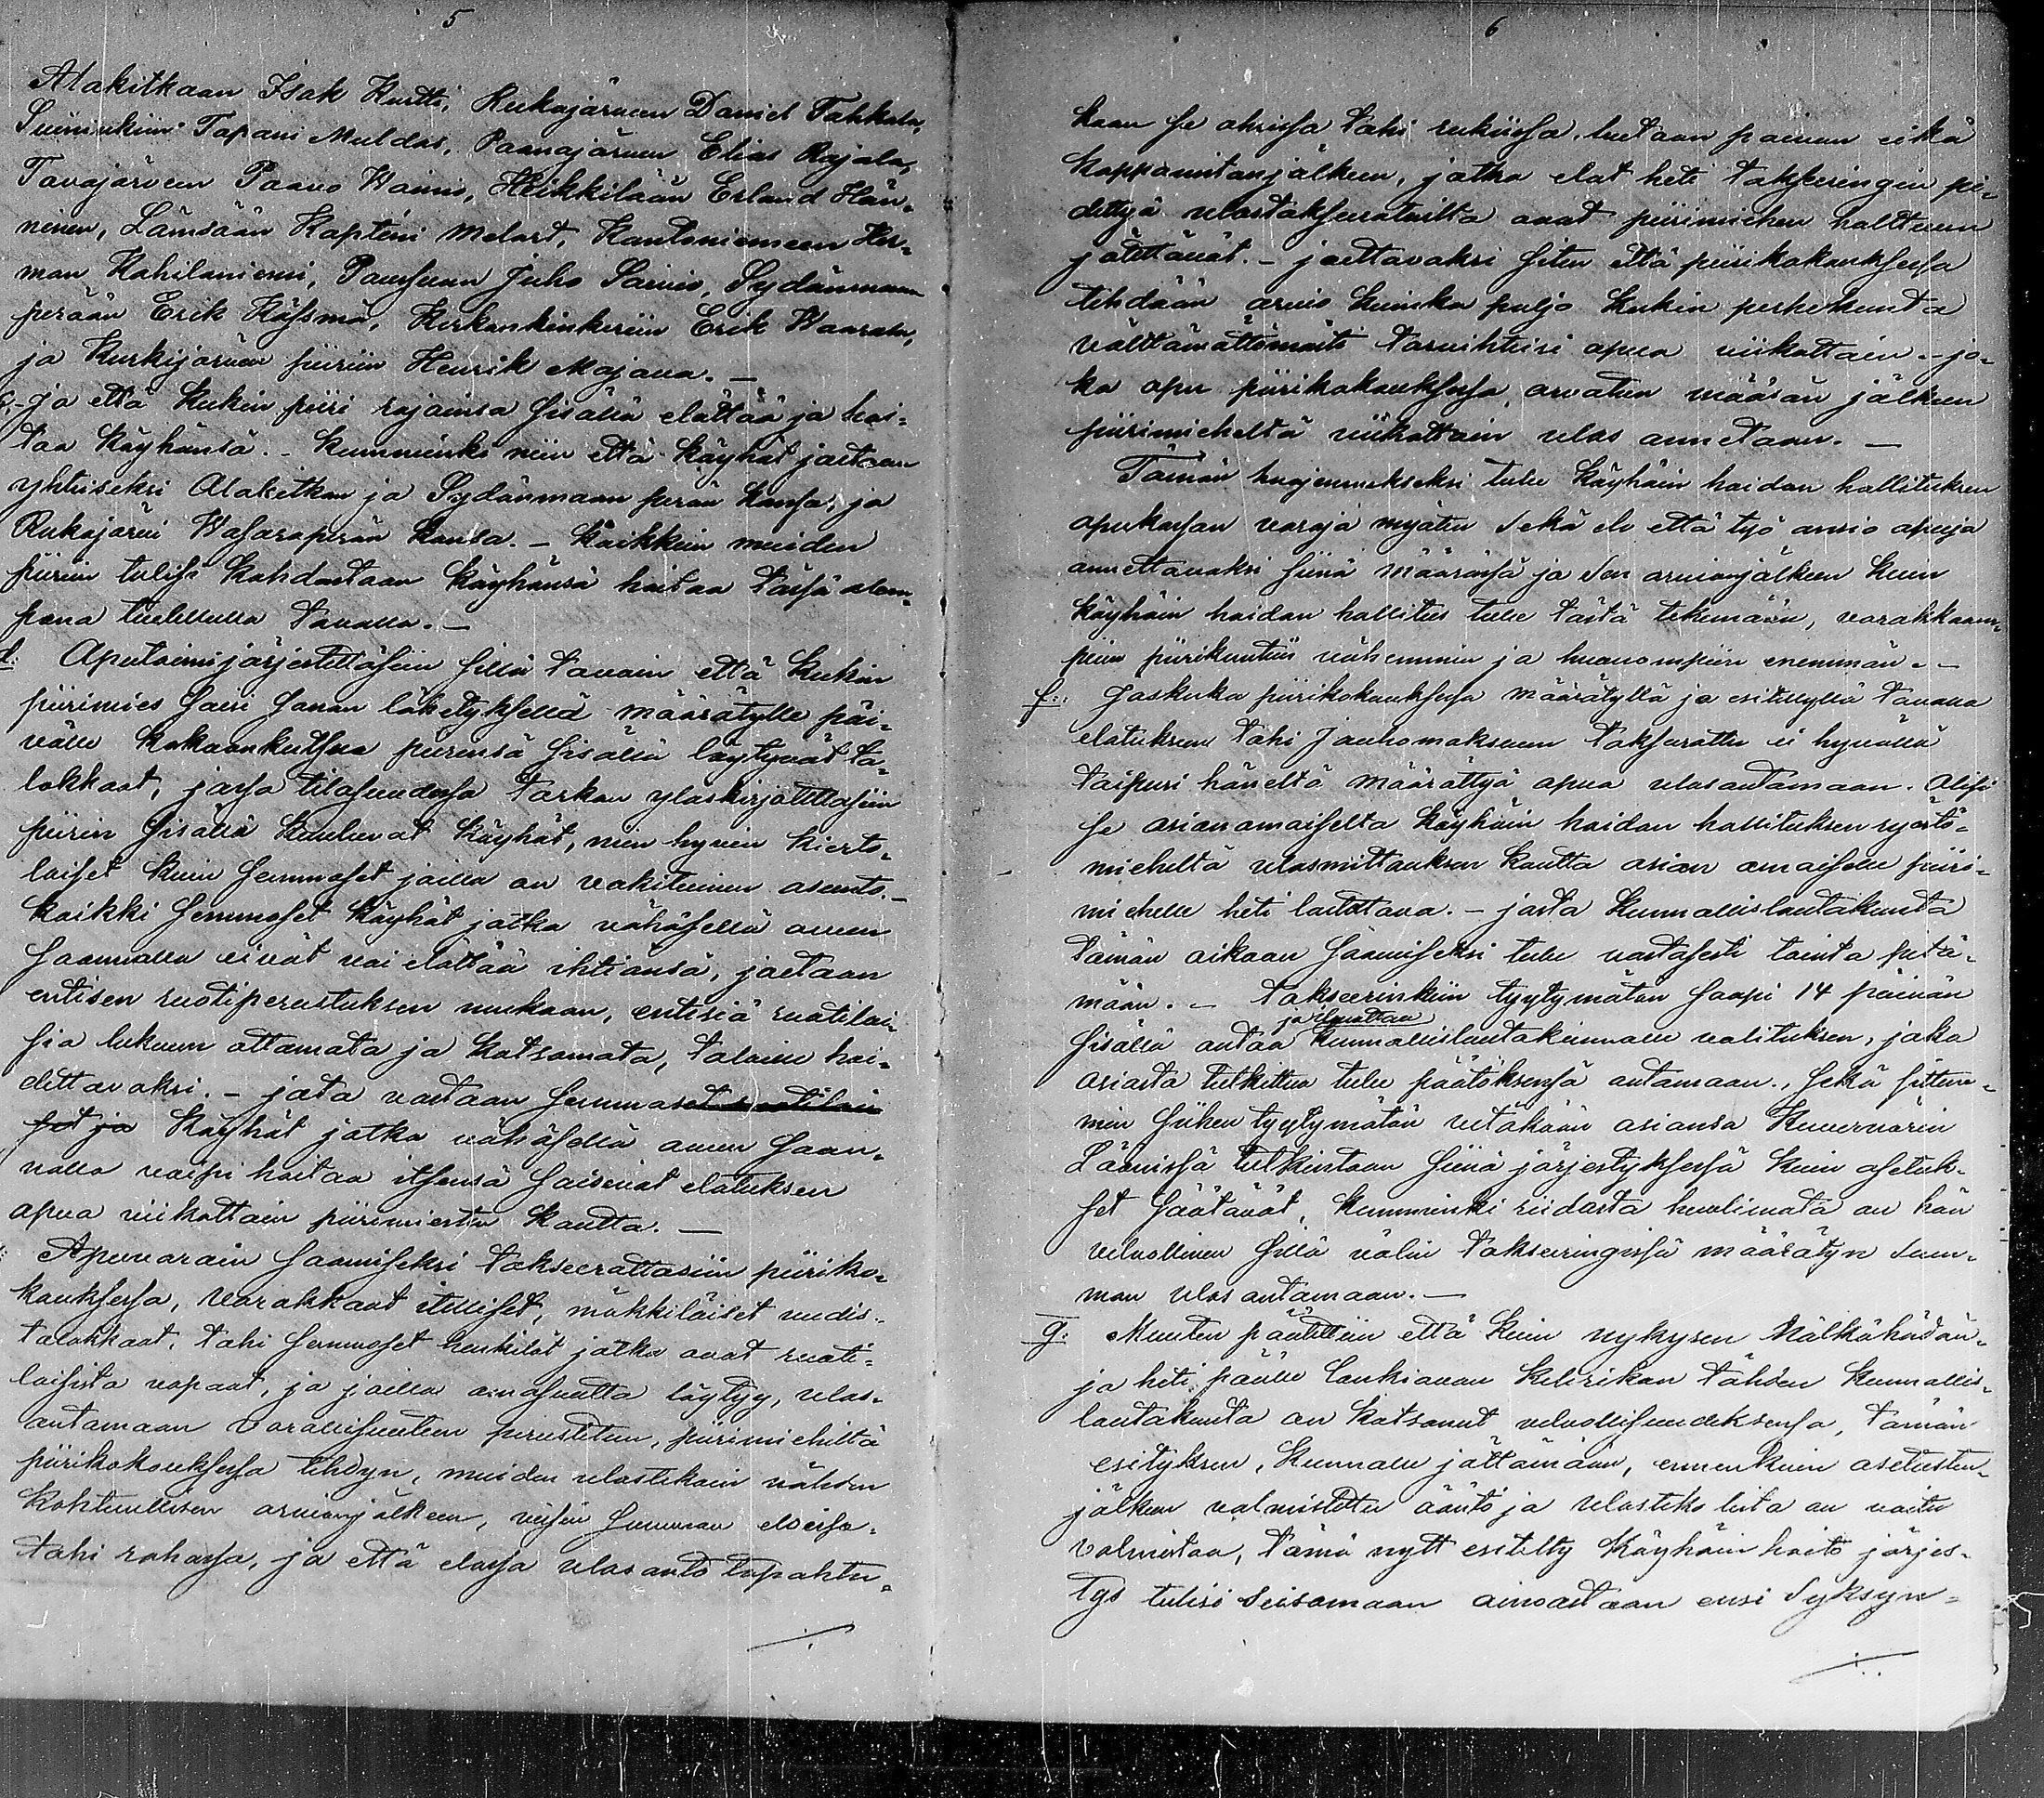 5
Alakitkaan Isak Kurtti, Rukajärveen Daniel Tahkola,
Suininkiin Tapani Muldas, Paanajärveen Elias Rajala,
Tavajärveen Paavo Wainio, Heikkilään Erland Hän-
ninen, Lämsään Kapteni Melart, Kantoniemeen Her-
man Kahilaniemi, Juho Sainio, Sydänmaan
perään Erik Käsmä, Kerkonkinkeriin Erik Waarala,
ja Kurkijärven piiriin Henrik Majava. —
c. - Ja että kukin piiri rajainsa sisällä elättää ja hoi-
taa Käyhänsä. - kumminki niin että käyhät jaetaan
yhteiseksi Alakitkan ja Sydänmaan perän kansa, ja
Rukajärvi Wasaraperän kansa. - Kaikkein muiden
piirein tulisi kohdastaan Käyhänsä hoitaa tässä alem-
pana luetellulla tavalla. —
d: Aputoimi järjestettäsiin sillä tavain että kukin
piirimies saisi sanan läketyksellä määrätylle päi-
välle kokoonkutsua piirensä sisällä läytyvät ta-
lokkaat, jassa tilasuudessa tarkan ylöskirjotettasiin
piirin sisällä kuuluvat käyhät, niin hyvin kierto-
laiset kuin semmoset joilla on vakituinen asunto. -
kaikki semmoset käyhät jotka vähäsellä avun
saannalla eivät voi elättää ihtiänsä, jaetaan
entisen ruotiperustuksen mukaan, entisiä ruotilai-
sia lukuun ottamata ja katsomata, taloin hoi-
dettavaksi. - jota vastaan semmoset ruotilai
set ja käyhät jotka vähäsellä avun saan-
nalla voipi hoitaa itsensä saisivat elatuksen
apua viikottain piirimiesten kautta. —
Apuvarain saamiseksi takseerattasiin piiriko-
kouksessa, varakkaat itelliset, mäkkiläiset uudis-
talokkaat, tahi semmoset henkilöt jotka ovat ruoti-
laisista vapaat, ja joilla omasuutta läytyy, ulos-
antamaan varallisuuteen perustetun, piirimiehiltä
piirikokouksessa tehdyn, muiden ulostekoin nähden
kohtuullisen arvionjälkeen, vissin summan eloissa
tahi rahassa, ja että elossa ulosanto tapahtu-
6
kaan se ohrissa tahi rukiissa, luetaan painun eikä
kappamitanjälkeen, jotka elot heti takseringin pi-
dettyä ulostakseeratuilta ovat piirimiehen haltuun
jätettävät. - jaettavaksi siten että piirikokouksessa
tehdään arvio kuinka paljo kukin perhekunta
välttämättömästi tarvihteisi apua viikottain - jo-
ka apu piirikokouksessa, arvatun määrän jälkeen
piirimieheltä viikottain ulos annetaan. —
Tämän huojennukseksi tulee Käyhäin hoidon hallituksen
apukassan varoja myäten sekä elo että työ ansio apuja
annettavaksi siinä määrässä ja sen arvionjälkeen kuin
Käyhäin hoidon hallitus tulee tästä tekemään, varakkaam-
piin piirikuntiin vähemmin ja huonompiin enemmän. -
f: Jaskuka piirikokouksessa määrätyllä ja esitellyllä tavalla
elatukseen tahi Jauhomaksuun taksarattu ei hyvällä
taipuisi häneltä määrättyä apua ulosantamaan. Olisi
se asianamaiselta Käyhäin hoidon hallituksen ryästö-
mieheltä ulosmittauksen kautta asian omaiselle piiri-
miehelle heti laitettava. - josta kunnallislautakunta
tämän aikaan saamiseksi tulee vastasesti tointa pitä-
mään. - takseerinkiin tyytymätän saapi 14 päivän
ja ilmottaa
sisällä antaa kunnallislautakunnalle valituksen, joka
asiasta tutkittua tulee päätöksensä antamaan, sekä sittem-
min siihen tyytymätän vetäkään asiansa Kuvernärin
Läänissä tutkintaan siinä järjestyksessä kuin asetuk-
set säätävät, kumminki riidasta huolimata on hän
velvollinen sillä välin takseeringissä määrätyn sum-
man ulosantamaan. —
g: Muuten päätettiin että kuin nykysen nälkähädän-
ja heti päälle lankiavan kelirikan tähden kunnallis-
lautakunta on katsonut velvollisuudeksensa, tämän
esityksen, kunnalle jättämään, ennenkuin asetusten-
jälken valmistettu ääntö ja ulosteko lista on voitu
valmistaa, tämä nytt esitelty Käyhäin hoito järjes-
tys tulisi seisomaan ainoastaan ensi syksyn-